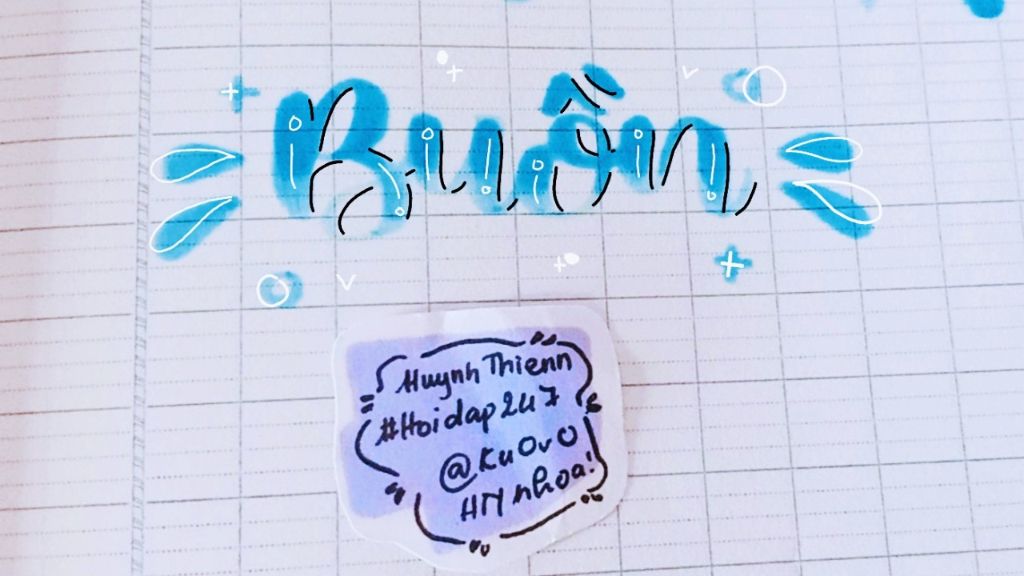 Buồn
Huynh Thienn
#Hoidap247
@Ku0v0
HN nhoa!